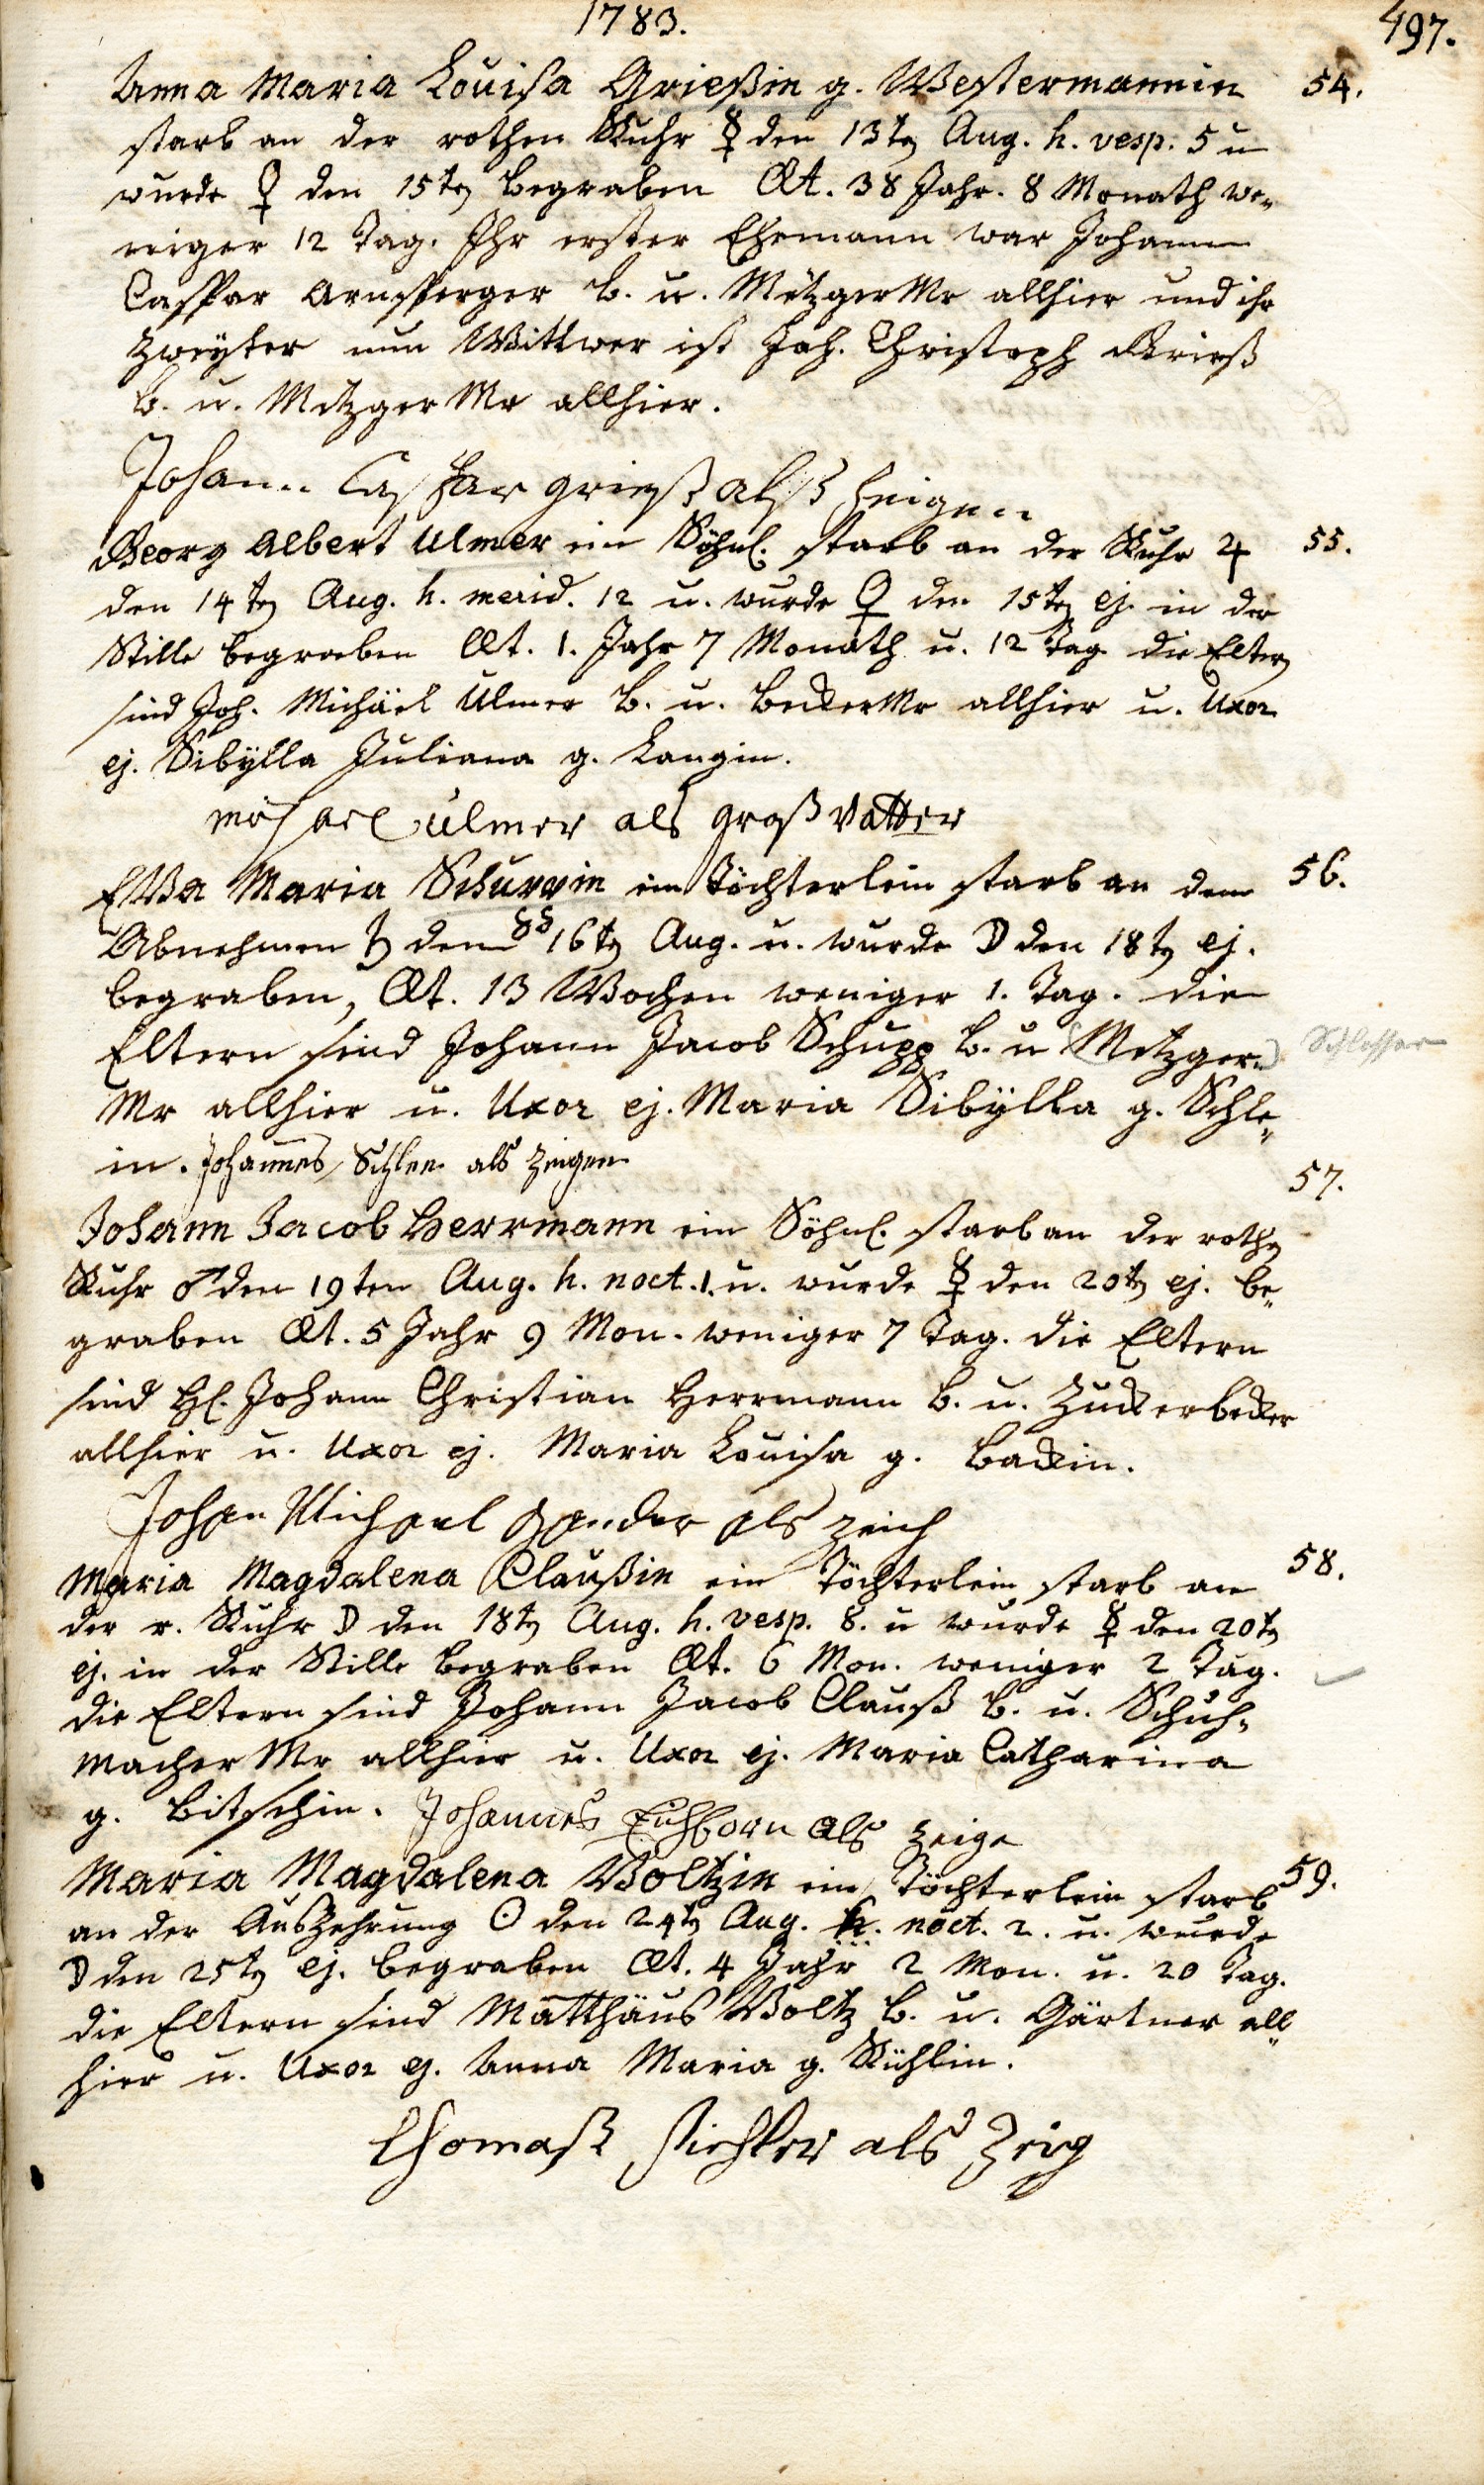 1783.
497.
Anna Maria Louisa Grießin g. Westermannin 54.
starb an der rothen Ruhr ☿ den 13ten Aug. h. vesp. 5 u
wurde ♀ den 15ten begraben Æt. 38 Jahr. 8 Monath we„
niger 12 Tag. Ihr erster Ehemann war Johann
Caspar Arnsperger b. u. Metzger Mr allhier und ihr
zweyter nun Wittwer ist Joh. Christoph Grieß
b. u. Metzger Mr allhier.
Johann Caspar grieß alß Zeigen
Georg Albert Ulmer ein Söhnl. starb an der Ruhr ♃ 55.
den 14ten Aug. h. merid. 12 u. wurde ♀ den 15ten ej. in der
Stille begraben Æt. 1. Jahr 7 Monath u. 12 Tag die Eltern
sind Joh. Michäel Ulmer b. u. Becker Mr allhier u. Uxor
ej. Sibÿlla Juliana g. Langin.
Michael Ulmer als groß Vatter
Eva Maria Schuppin ein Töchterlein starb an dem 56.
Abnehmen ♄ den 16ten Aug. u. wurde ☽ den 18ten ej.
begraben, Æt. 13 Wochen weniger 1. Tag. die
Eltern sind Johann Jacob Schupp b. u (Metzger„) Schlosser
Mr allhier u. Uxor ej. Maria Sibÿlla g. Schle„
in. Johannes Schlee als Zeigen
57.
Johann Jacob Herrmann ein Söhnl. starb an der rothen
Ruhr ♂ den 19ten Aug. h. noct. 1. u. wurde ☿ den 20ten ej. be„
graben Æt. 5 Jahr 9 Mon. weniger 7 Tag. die Eltern
sind H. Johann Christian Herrmann b. u. Zuckerbecker
allhier u. Uxor ej. Maria Louisa g. Backin.
Johan Michael Gander als zeich
Maria Magdalena Claußin ein Töchterlein starb an 58.
der r. Ruhr ☽ den 18ten Aug. h. vesp. 8. u wurde ☿ den 20ten
ej. in der Stille begraben Æt. 6 Mon. weniger 2 Tag.
die Eltern sind Johann Jacob Clauß b. u. Schuh„
macher Mr allhier u. Uxor ej. Maria Catharina
g. Bitschin. Johannes Eichborn als zeige
Maria Magdalena Voltzin ein Töchterlein starb 59.
an der Auszehrung ☉ den 24ten Aug. h. noct. 2. u. wurde
☽ den 25ten ej. begraben Æt. 4 Jahr 2 Mon. u. 20 Tag.
die Eltern sind Matthäus Voltz b. u. Gärtner all„
hier u. Uxor ej. Anna Maria g. Kühlin.
Thomaß Richter als Zeig